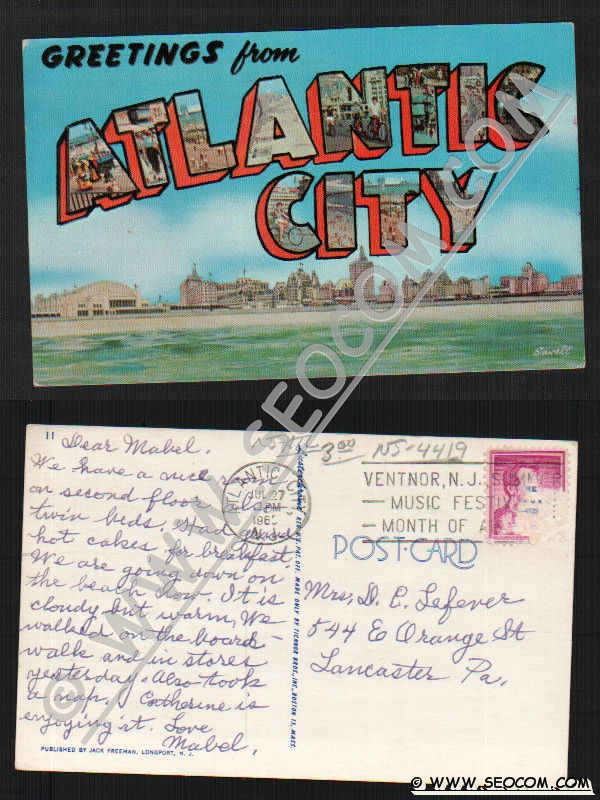 GREETINGS from
ATLANTIC
CITY
Savell
© WWW.SEOCOM.COM
11
Dear Mabel.
We have a nice room
on second floor
twin beds. Had good
hot cakes for breakfast.
We are going down on
the beach now. It is
cloudy but warm, We
walked on the board-
walk and in stores
yesterday. Also took
a nap. Catherine is
enjoying it. Love
Mabel.
PUBLISHED BY JACK FREEMAN, LONGPORT, N. J.
MADE ONLY BY TICHNOR BROS., INC., BOSTON 15, MASS.
3.00
NJ-4419
ATLANTIC CITY
JUL 27
PM
VENTNOR, N.J. SUMMER
— MUSIC FESTI
— MONTH OF A
POST CARD
Mrs. D. C. Lefever
544 E Orange St
Lancaster Pa.
© WWW.SEOCOM.COM